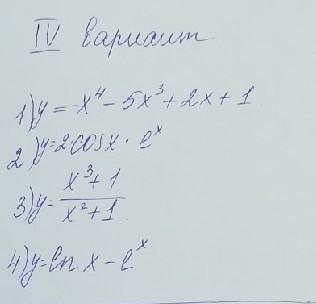 IV вариант
1) y = x⁴ - 5x³ + 2x + 1
2) y = 2cosx · eˣ
3) y = (x³ + 1)/(x² + 1)
4) y = ln x - eˣ